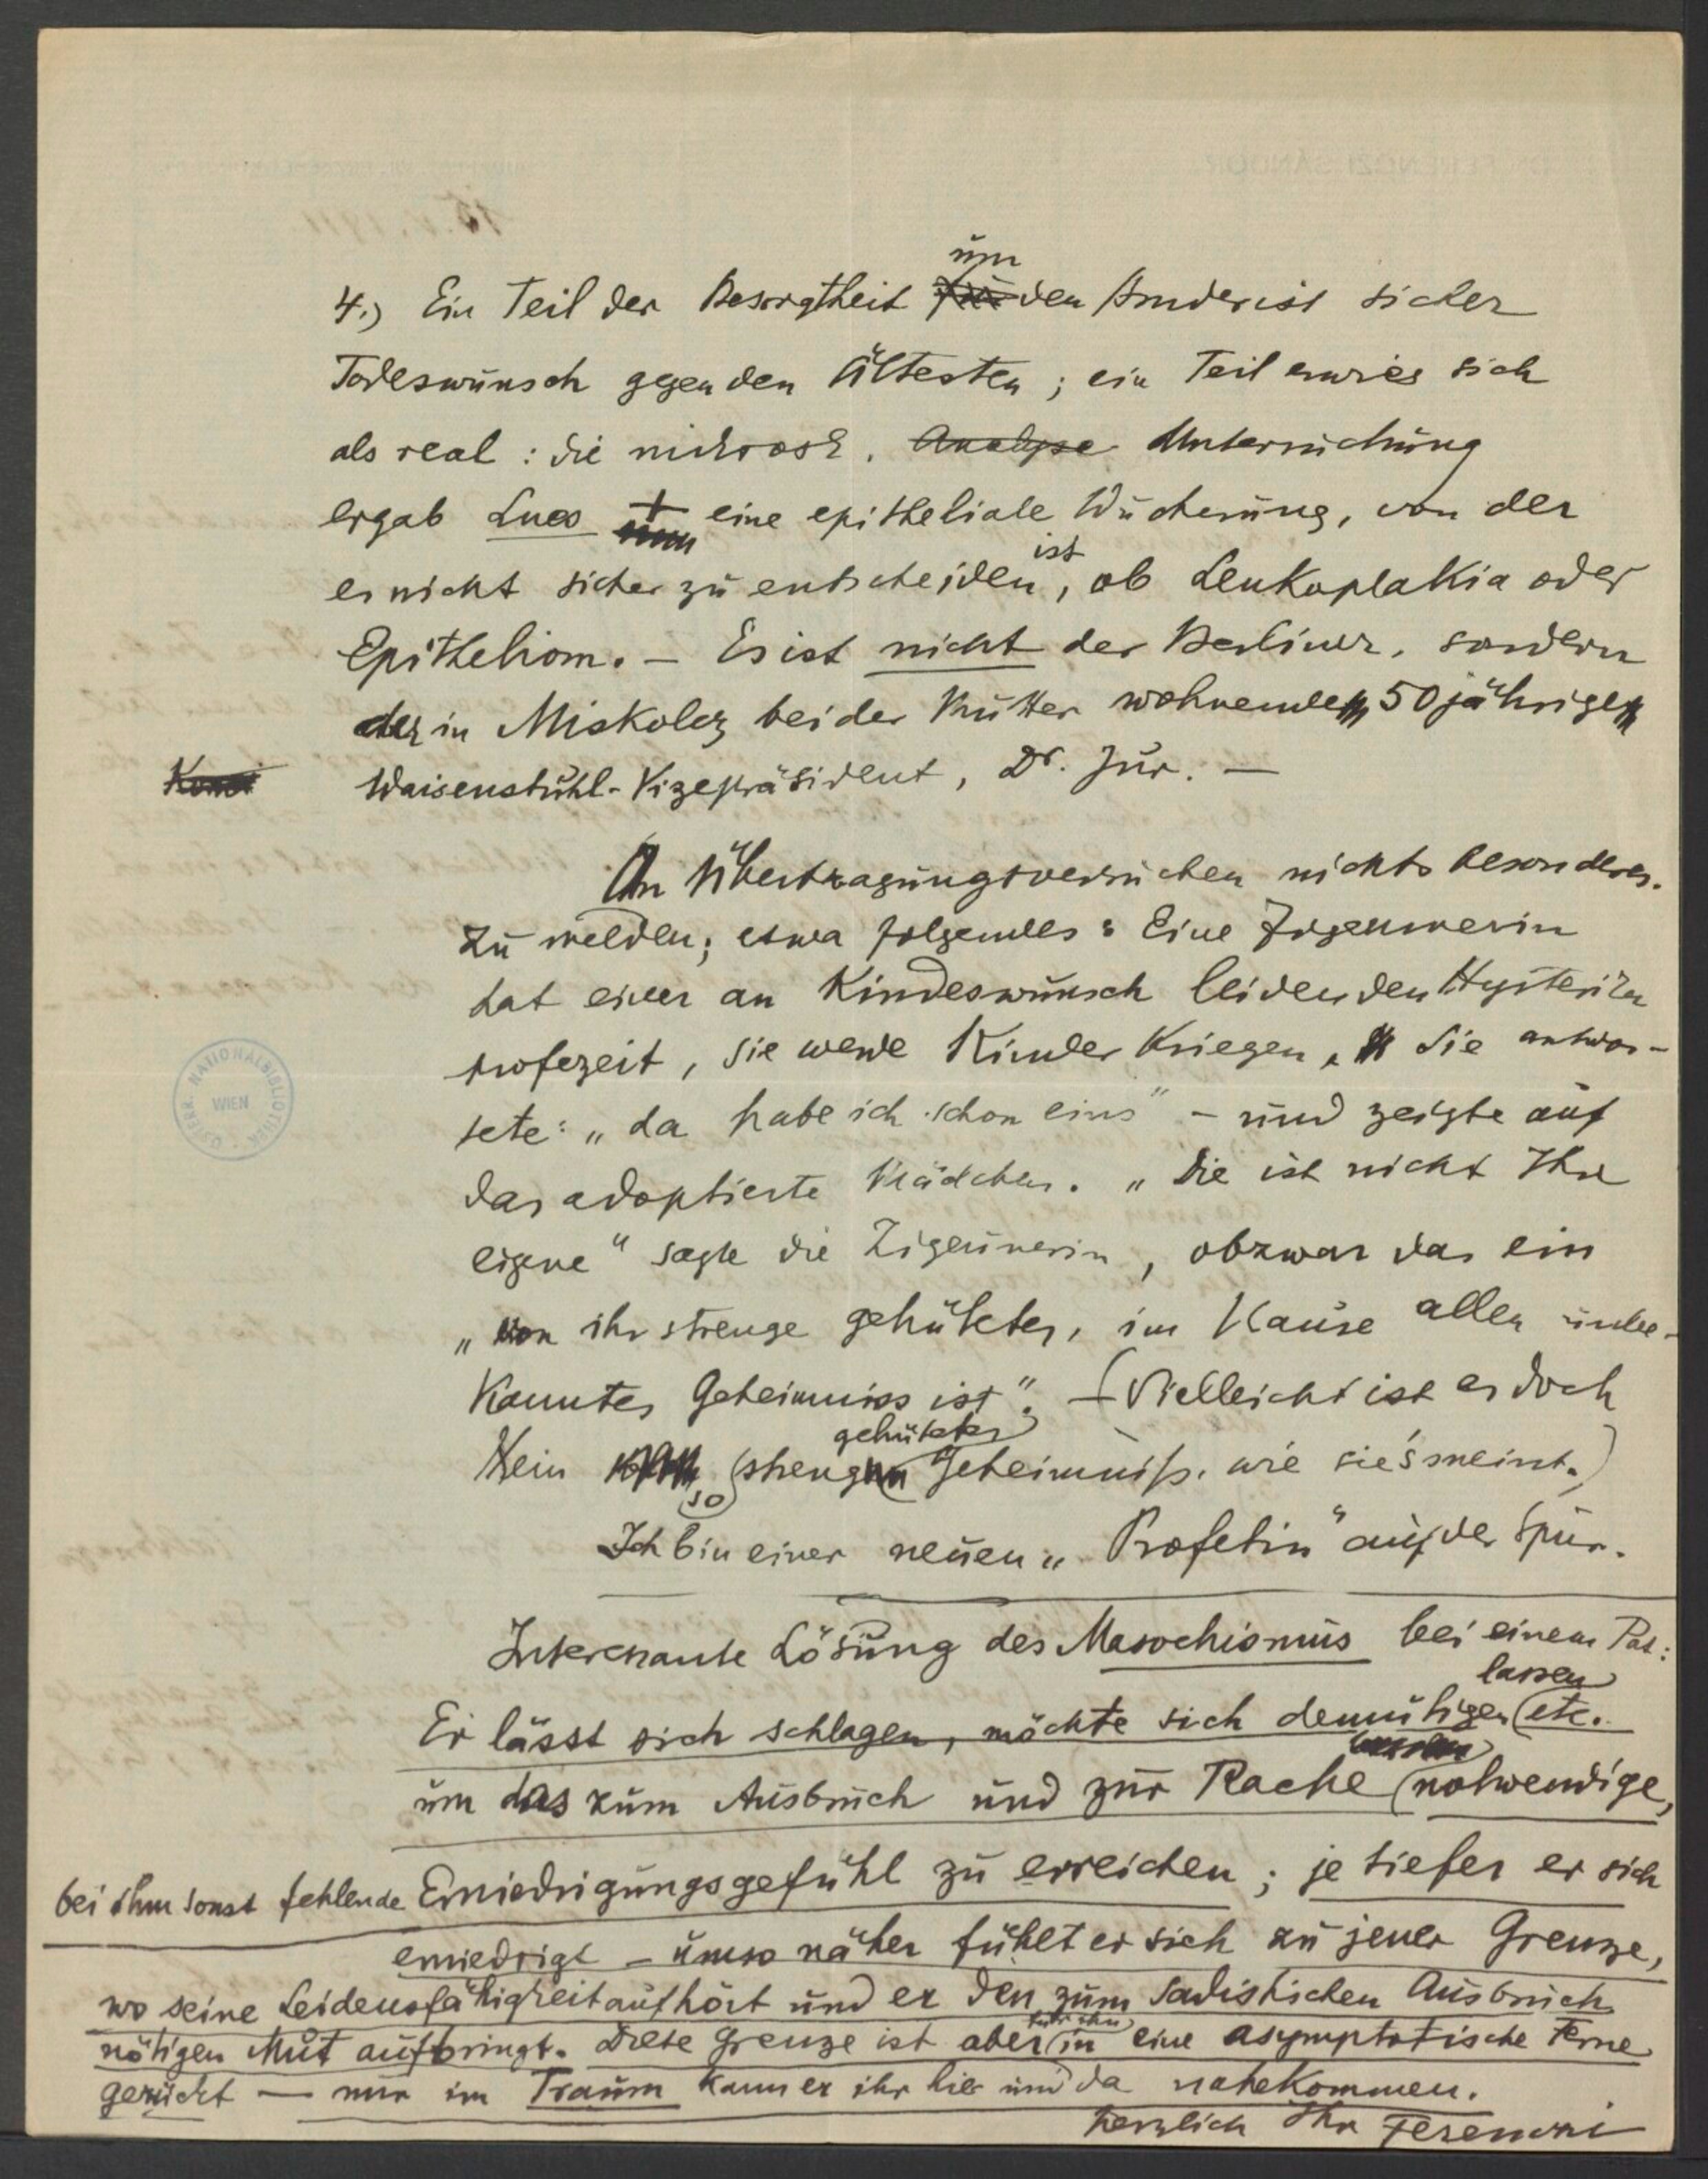 4.) Ein Teil der Besorgtheit für um den Bruder ist sicher
Todeswunsch gegen den Ältesten; ein Teil erwies sich
als real: die mikrosk. Analyse Untersuchung
ergab Lues + eine epitheliale Wucherung, von der
es nicht sicher zu entscheiden ist, ob Leukoplakia oder
Epitheliom. – Es ist nicht der Berliner, sondern
der in Miskolcz bei der Mutter wohnende 50 jährige
Waisenstuhl-Vizepräsident, Dr. Jur. –
An Übertragungsversuchen nichts besonderes
zu melden; etwa folgendes: Eine Zigeunerin
hat einer an Kindeswunsch leidenden Hysterika
profezeit, sie werde Kinder kriegen. Sie antwor-
tete: „da habe ich schon eins" – und zeigte auf
das adoptierte Mädchen. „Die ist nicht Ihre
eigene" sagte die Zigeunerin, obzwar das ein
„von ihr strenge gehütetes, im Hause allen unbe-
kanntes Geheimniss ist". – (Vielleicht ist es doch
kein so streng gehütetes Geheimniß, wie sie's meint.)
Ich bin einer neuen „Profetin" auf der Spur.
Interessante Lösung des Masochismus bei einem Pat:
Er lässt sich schlagen, möchte sich demütigen lassen etc.
um das zum Ausbruch und zur Rache notwendige,
bei ihm sonst fehlende Erniedrigungsgefühl zu erreichen; je tiefer er sich
erniedrigt – umso näher fühlt er sich zu jener Grenze,
wo seine Leidensfähigkeit aufhört und er den zum sadistischen Ausbruch
nötigen Mut aufbringt. Diese Grenze ist aber für ihn in eine asymptotische Ferne
gerückt — nur im Traum kann er ihr hie und da nahekommen.
Herzlich Ihr Ferenczi
ÖSTERR. NATIONALBIBLIOTHEK
WIEN